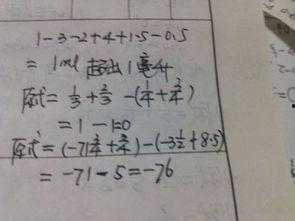 1-3-2+4+1.5-0.5
= 1ml 超出1毫升
原式=1/3+2/3-(1/4+3/4)
=1-1=0
原式=(-71 3/4+3/4)-(-3 1/2+8.5)
=-71-5=-76